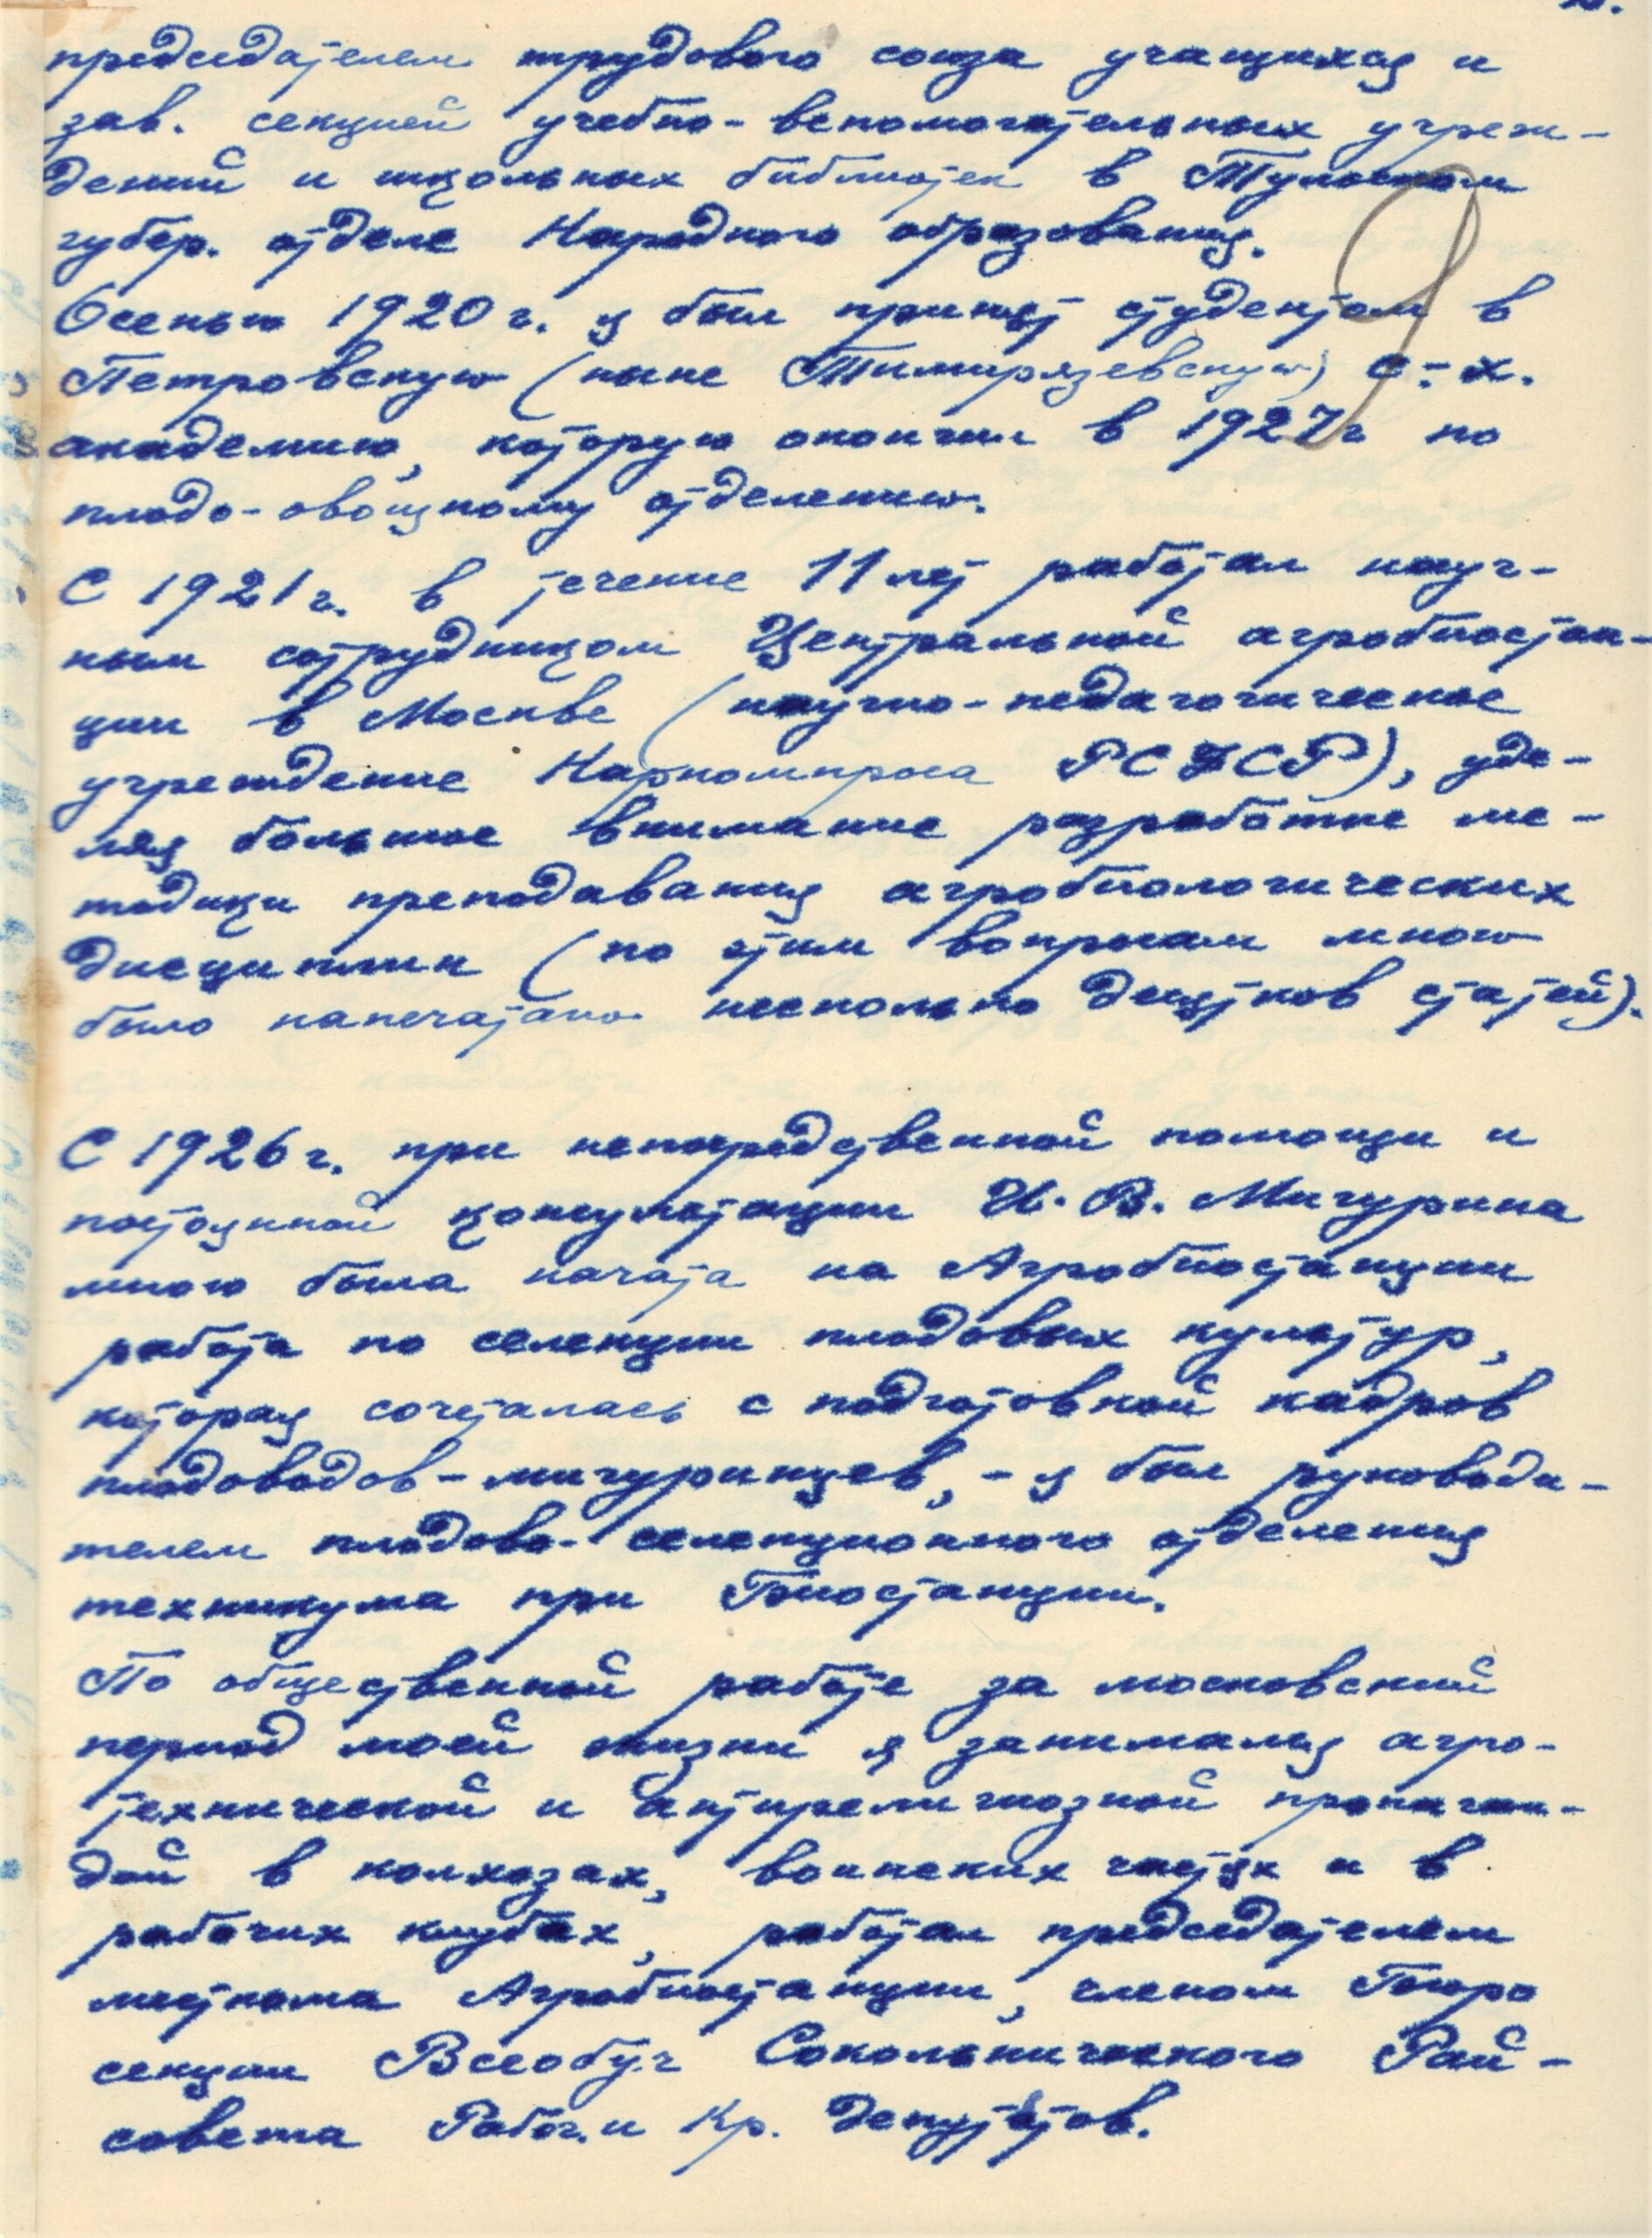 председателем трудового союза учащихся и
зав. секцией учебно-вспомогательных учреж-
дений и школьных библиотек в Тульском
губер. отделе Народного образования.
Осенью 1920 г. я был принят студентом в
Петровскую (ныне Тимирязевскую) с.-х.
академию, которую окончил в 1927 г по
плодо-овощному отделению.
С 1921 г. в течение 11 лет работал науч-
ным сотрудником Центральной агробиостан-
ции в Москве (научно-педагогическое
учреждение Наркомпроса РСФСР), уде-
ляя большое внимание разработке ме-
тодики преподавания агробиологических
дисциплин (по этим вопросам мною
было напечатано несколько десятков статей).
С 1926 г. при непосредственной помощи и
постоянной консультации И. В. Мичурина
мною была начата на Агробиостанции
работа по селекции плодовых культур,
которая сочеталась с подготовкой кадров
плодоводов-мичуринцев, - я был руководи-
телем плодово-селекционного отделения
техникума при Биостанции.
По общественной работе за московский
период моей жизни я занимался агро-
технической и антирелигиозной пропаган-
дой в колхозах, воинских частях и в
рабочих клубах, работал председателем
месткома Агробиостанции, членом Бюро
секции Всеобуч Сокольнического Рай-
совета Рабоч. и Кр. Депутатов.